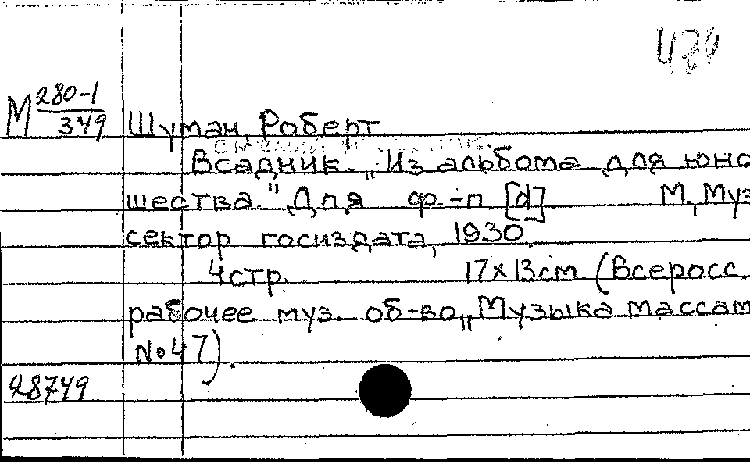 М 280-1
349
Шуман, Роберт
Всадник. „Из альбома для юно
шества." Для ф.-п [d] М, Муз
сектор госиздата, 1930.
4стр. 17х13см (Всеросс.
рабочее муз. об-во „Музыка массам
№47).
28749